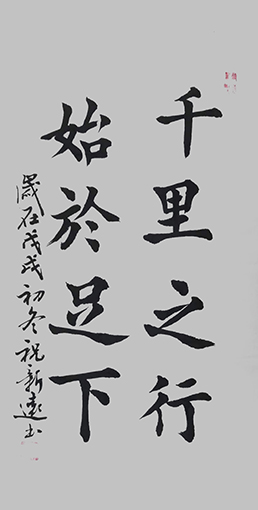 千里之行
始於足下
歲在戊戌初冬祝新遠書